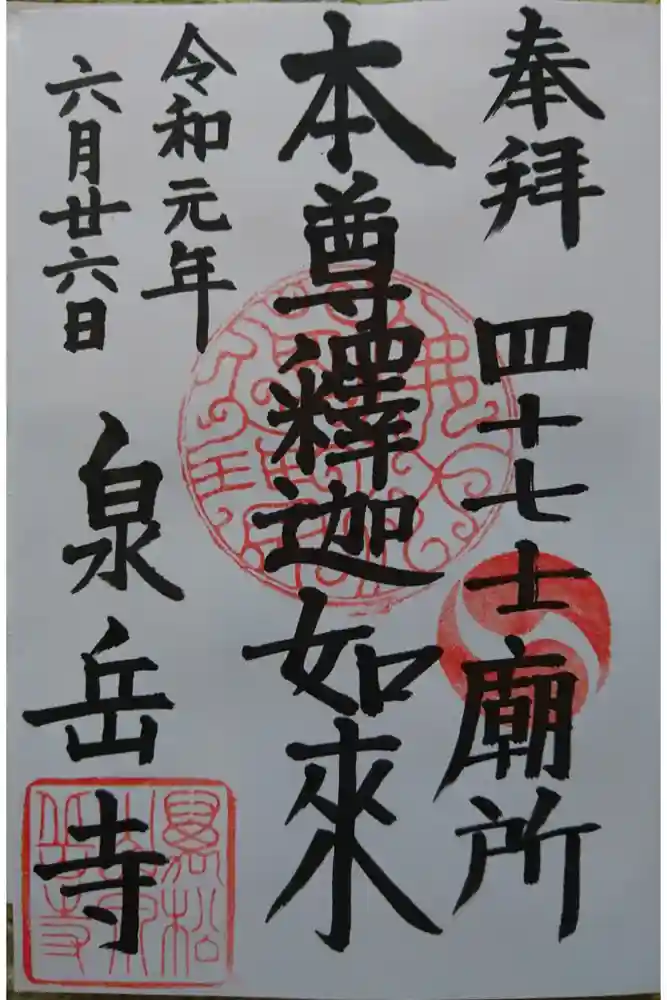 奉拝
四十七士廟所
本尊釋迦如來
令和元年
六月廿六日
泉岳寺